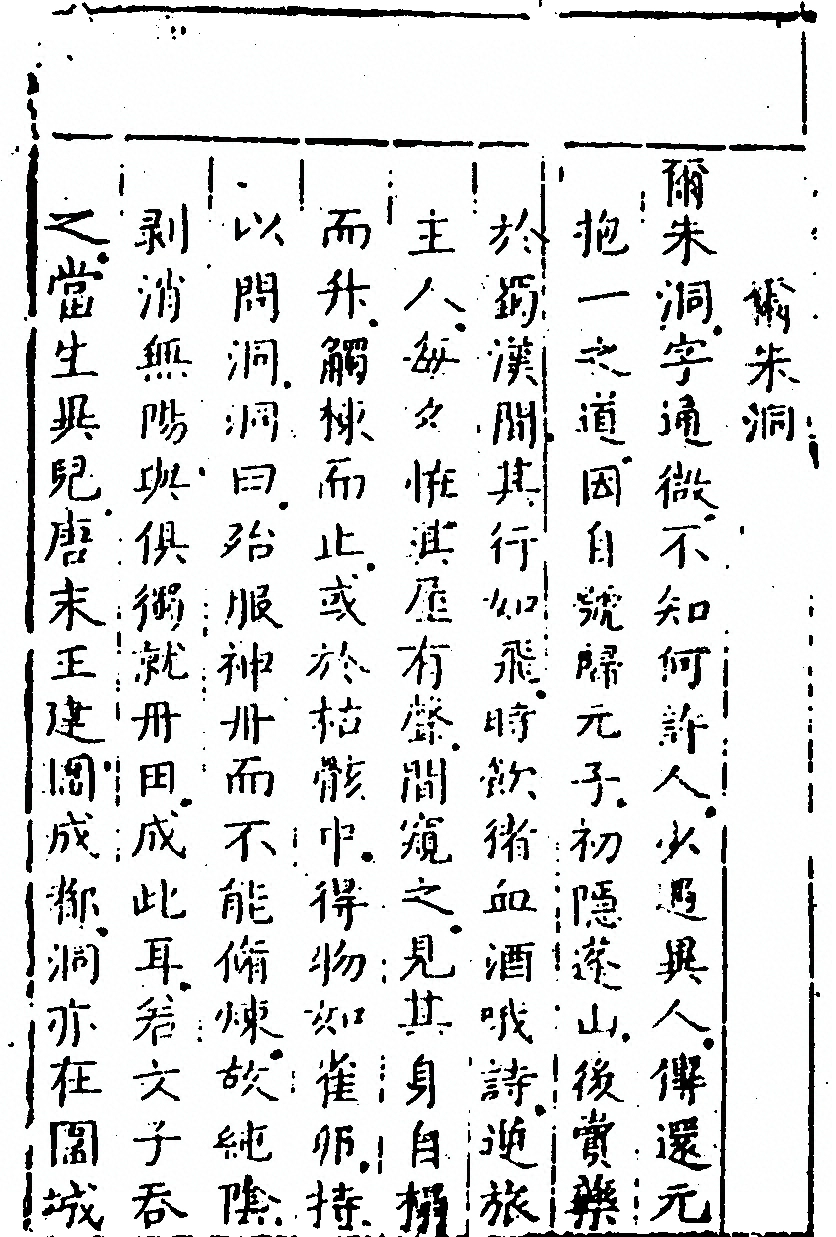 爾朱洞
爾朱洞字通微不知何許人少遇異人傳還元
抱一之道因自號歸元子初隱蓬山後賣藥
於蜀漢間其行如飛時飲猪血酒哦詩逆旅
主人每夕怪其屋有聲間窺之見其身自榻
而升觸棟而止或於枯骸中得物如雀卵持
以問洞洞曰殆服神丹而不能脩煉故純陰
剥消無陽與俱獨就丹田成此耳若女子吞
之當生異兒唐末王建圍成都洞亦在圍城